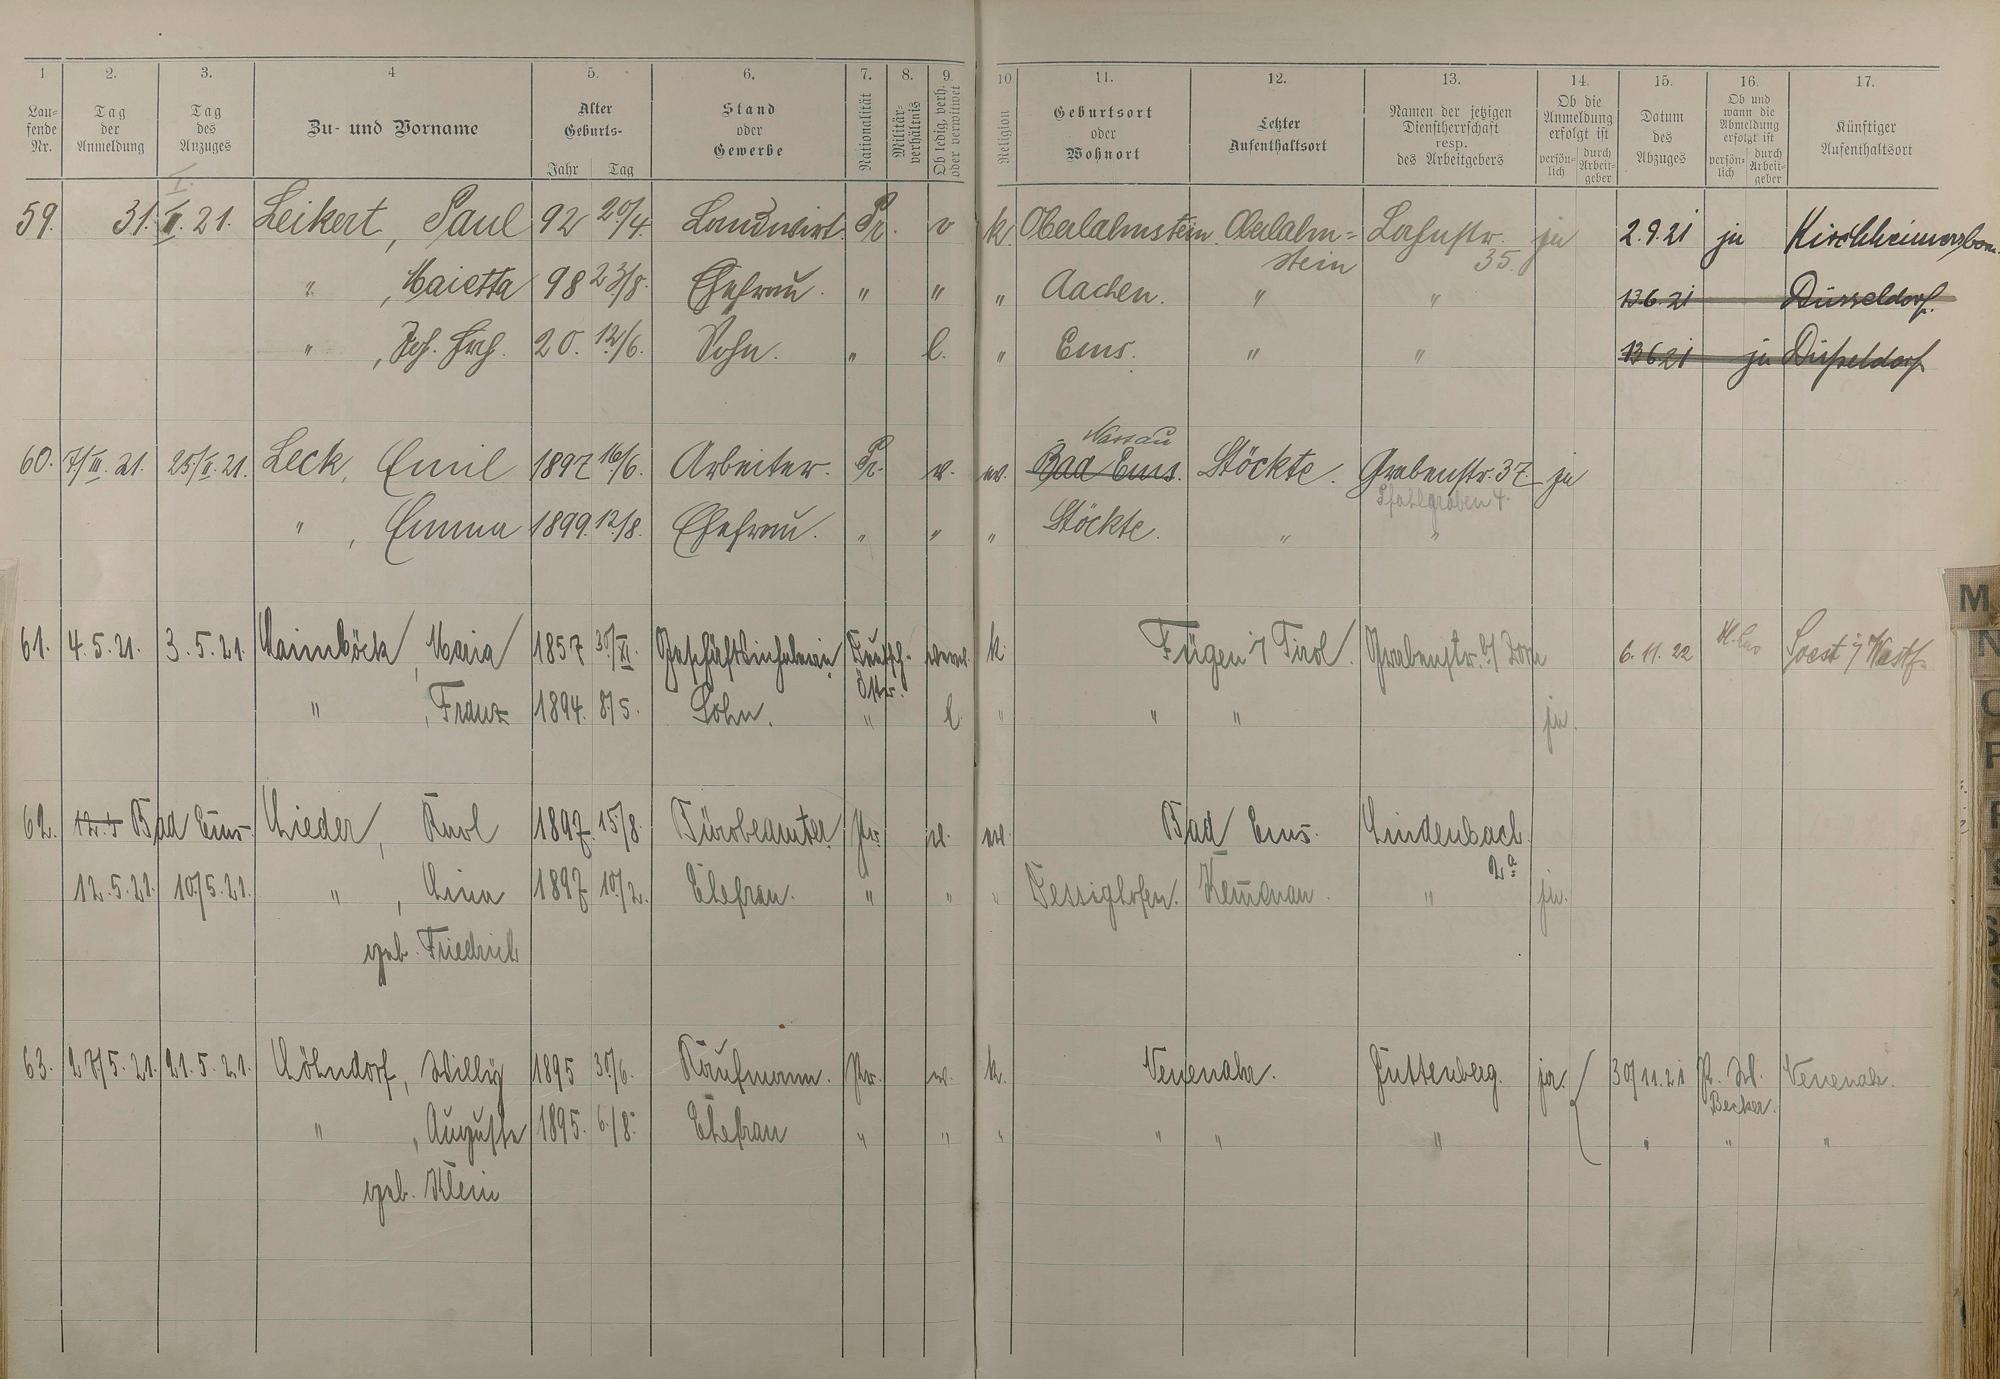 1 2. 3. 4 5. 6. 7. 8. 9. 10 11. 12. 13. 14. 15. 16. 17.
Laufende Nr. Tag der Anmeldung Tag des Anzuges Zu- und Vorname Alter Geburts- Jahr Tag Stand oder Gewerbe Nationalität Militärverhältnis Ob ledig, verh. oder verwitwet Religion Geburtsort oder Wohnort Letzter Aufenthaltsort Namen der jetzigen Dienstherrschaft resp. des Arbeitgebers Ob die Anmeldung erfolgt ist persönlich durch Arbeitgeber Datum des Abzuges Ob und wann die Abmeldung erfolgt ist persönlich durch Arbeitgeber Künftiger Aufenthaltsort
59. 31. II. 21. Leikert, Paul 92 20/4. Landwirt. Pr. v k. Oberlahnstein. Oberlahn= Lahnstr. ja 2.9.21 ja Kirchheimers
stein 35.
" , Marietta 98 23/8. Ehefrau. " " " Aachen. " " 13.6.21 Düsseldorf.
" , Joh. Frch. 20. 12/6. Sohn. " l. " Ems. " " 13.6.21 ja Düsseldorf
Nassau
60. 7/III. 21. 25/II. 21. Leck, Emil 1897 16/6. Arbeiter. Pr. v. ev. Bad Ems. Stöckte. Grabenstr. 37 ja
Pfahlgraben 4.
" , Emma 1899. 12/8. Ehefrau. " " " Stöckte. " "
61. 4.5.21. 3.5.21. Lainböck, Maria 1857 30/XI. Geschäftsinhaberin Deutsch- verw. k. Fügen i/ Tirol. Grabenstr. b/ Dorn 6.11.22 Soest i/ Westf.
Östr.
" , Franz 1894. 8/5. Sohn. " l. " " " ja.
62. 12.5 Bad Ems. Lieder, Karl 1897. 15/8. Bürobeamter Pr. v. ev. Bad Ems. Lindenbach.
2a
12.5.21. 10/5.21. " , Lina 1897 10/2. Ehefrau. " " " Dessighofen. Kemenau. " ja.
geb. Friedrich
63. 27/5.21. 21.5.21. Löhndorf, Willÿ 1895 30/6. Kaufmann. Pr. v. k. Neuenahr. Guttenberg. ja. 30/11.21 Becker. Neuenahr.
" , Auguste 1895. 6/8. Ehefrau " " " " " " " " "
geb. Klein
M
N
O
P
R
S